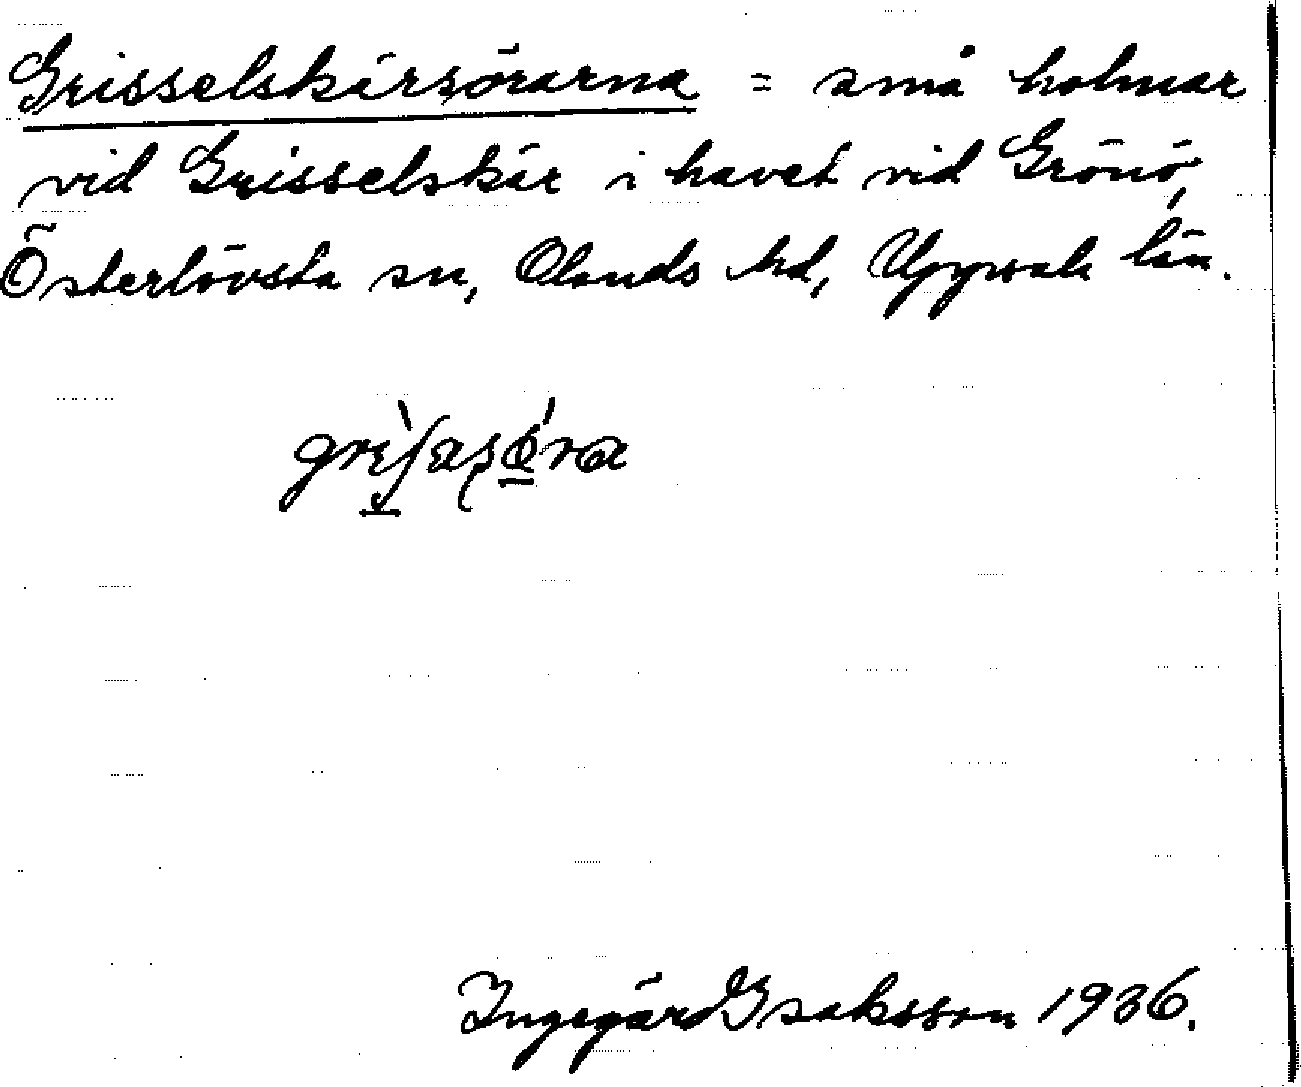 Grisselskärsörarna = små holmar
vid Grisselskär i havet vid Grönö,
Österlövsta sn, Olands hd, Uppsala län.
Ingegärd Isaksson 1936.